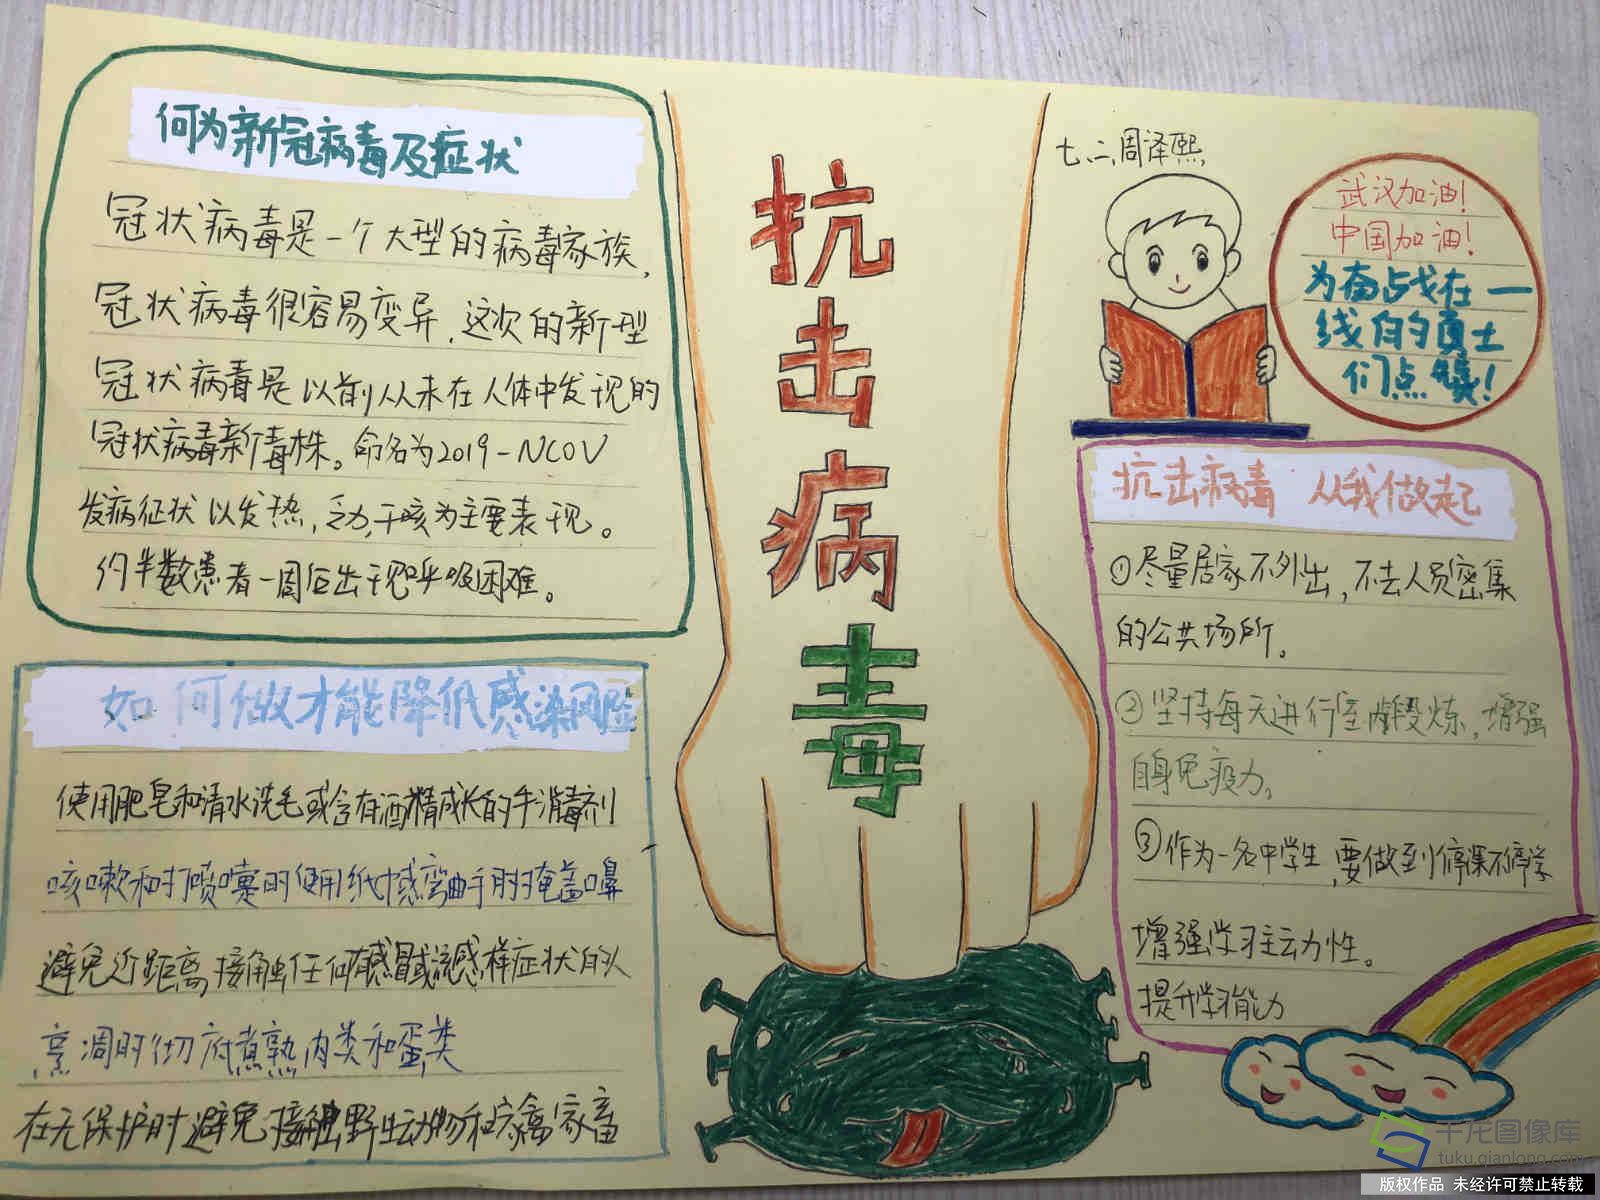 何为新冠病毒及症状
冠状病毒是一个大型的病毒家族,
冠状病毒很容易变异,这次的新型
冠状病毒是以前从未在人体中发现的
冠状病毒新毒株。命名为2019-NCOV
发病征状以发热,乏力,干咳为主要表现。
约半数患者一周后出现呼吸困难。
如何做才能降低感染风险
使用肥皂和清水洗手或含有酒精成长的手消毒剂
咳嗽和打喷嚏时使用纸或弯曲手肘掩盖口鼻
避免近距离接触任何有感冒或流感样症状的人
烹调时彻底煮熟肉类和蛋类
在无保护时避免接触野生动物和家禽家畜
抗
击
病
毒
七、二周泽熙
武汉加油!
中国加油!
为奋战在一
线的勇士
们点赞!
抗击病毒 从我做起
①尽量居家不外出,不去人员密集
的公共场所。
②坚持每天进行室内锻炼,增强
自身免疫力。
③作为一名中学生,要做到停课不停学
增强学习主动性。
提升学习能力
千龙图像库
tuku.qianlong.com
版权作品 未经许可禁止转载